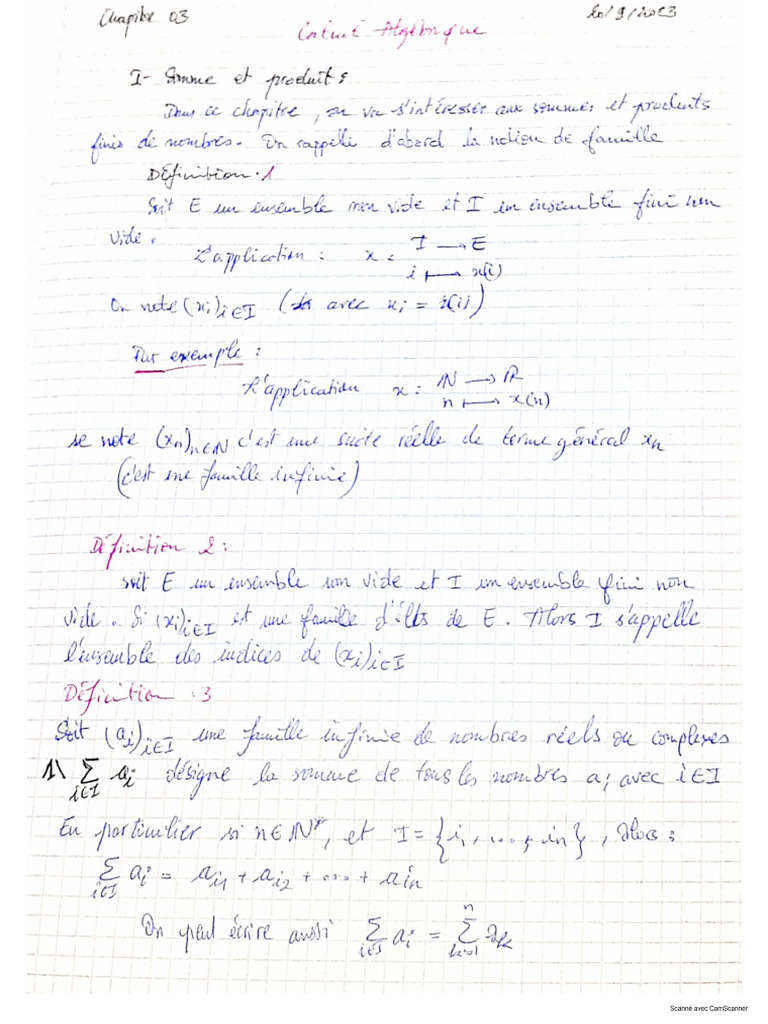 Chapitre 03
20/9/2023
Calcul Algébrique
I- Somme et produit :
Dans ce chapitre, on va s'intéresser aux sommes et produits
finis de nombres. On rappelle d'abord la notion de famille
Définition.1
Soit E un ensemble non vide et I un ensemble fini non
vide.
L'application : x : I → E
i ↦ x(i)
On note (xi)i∈I ( avec xi = i(i))
Par exemple :
L'application x : ℕ → ℝ
n ↦ x(n)
se note (xn)n∈ℕ c'est une suite réelle de terme général xn
(c'est une famille infinie)
Définition 2 :
soit E un ensemble non vide et I un ensemble fini non
vide. Si (xi)i∈I est une famille d'élts de E. Alors I s'appelle
l'ensemble des indices de (xi)i∈I
Définition : 3
Soit (ai)i∈I une famille infinie de nombres réels ou complexes
1\ ∑i∈I ai désigne la somme de tous les nombres ai avec i∈I
En particulier si n∈ℕ*, et I = {i1, ..., in}, Alors :
∑i∈I ai = ai1 + ai2 + ... + ain
On peut écrire aussi ∑i∈I ai = ∑k=1n ak
Scanné avec CamScanner